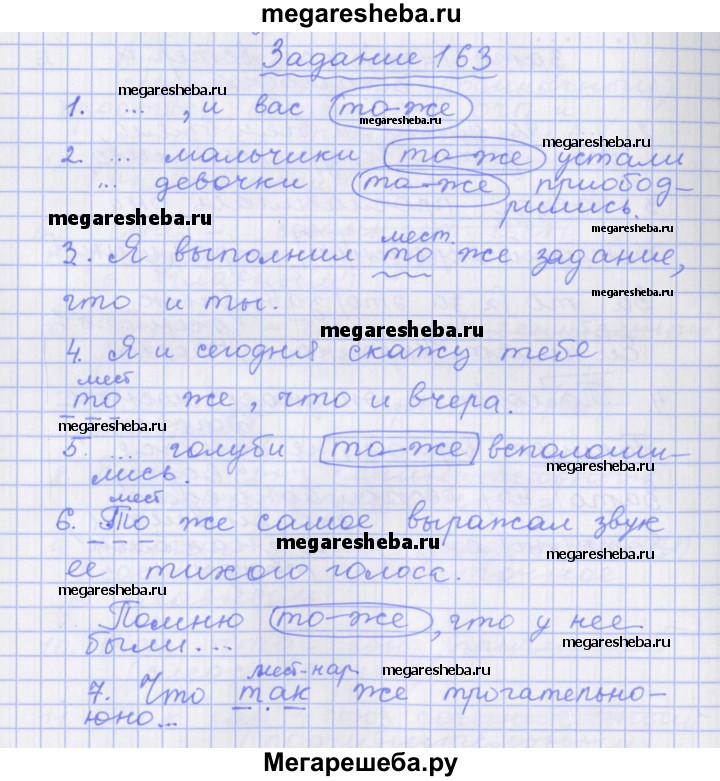 megaresheba.ru
Задание 163
megaresheba.ru
1. ... , и вас то-же
megaresheba.ru
megaresheba.ru
2. ... мальчики то-же устали
... девочки то-же приобод-
рились.
megaresheba.ru
megaresheba.ru
мест.
3. Я выполнил то же задание,
что и ты.
megaresheba.ru
megaresheba.ru
4. Я и сегодня скажу тебе
мест
то же, что и вчера.
megaresheba.ru
5. ... голуби то-же всполоши-
лись.
megaresheba.ru
мест
6. То же самое выражал звук
megaresheba.ru
megaresheba.ru
ее тихого голоса.
megaresheba.ru
Помню то-же, что у нее
были...
megaresheba.ru
мест-нар.
megaresheba.ru
7. Что так же трогательно-
юно...
Мегарешеба.ру